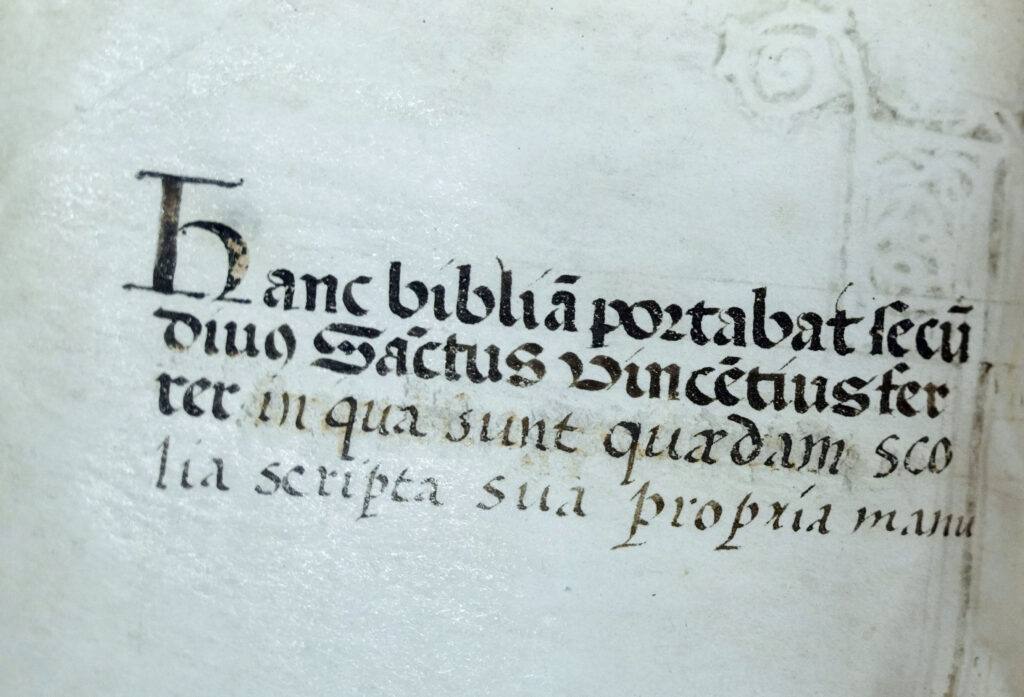 Hanc bibliā portabat secū
diuꝯ Sāctus Vincētius fer
rer in qua sunt quædam sco
lia scripta sua propria manu